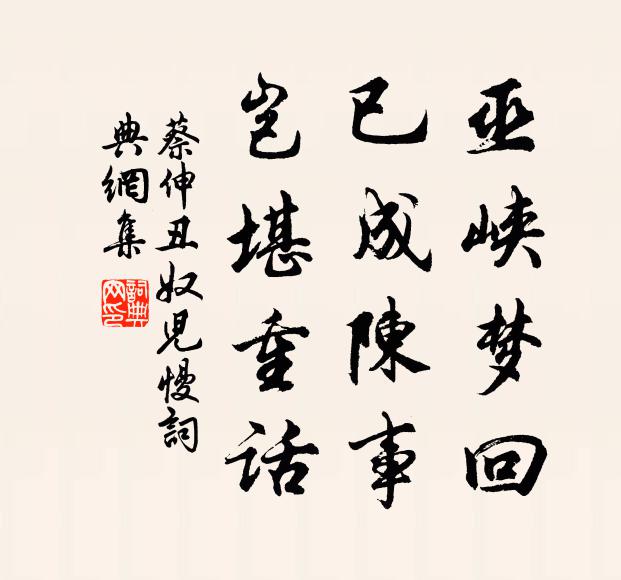 巫峡梦回
已成陳事
岂堪重话
蔡伸丑奴児慢詞
典網集
詞典网印